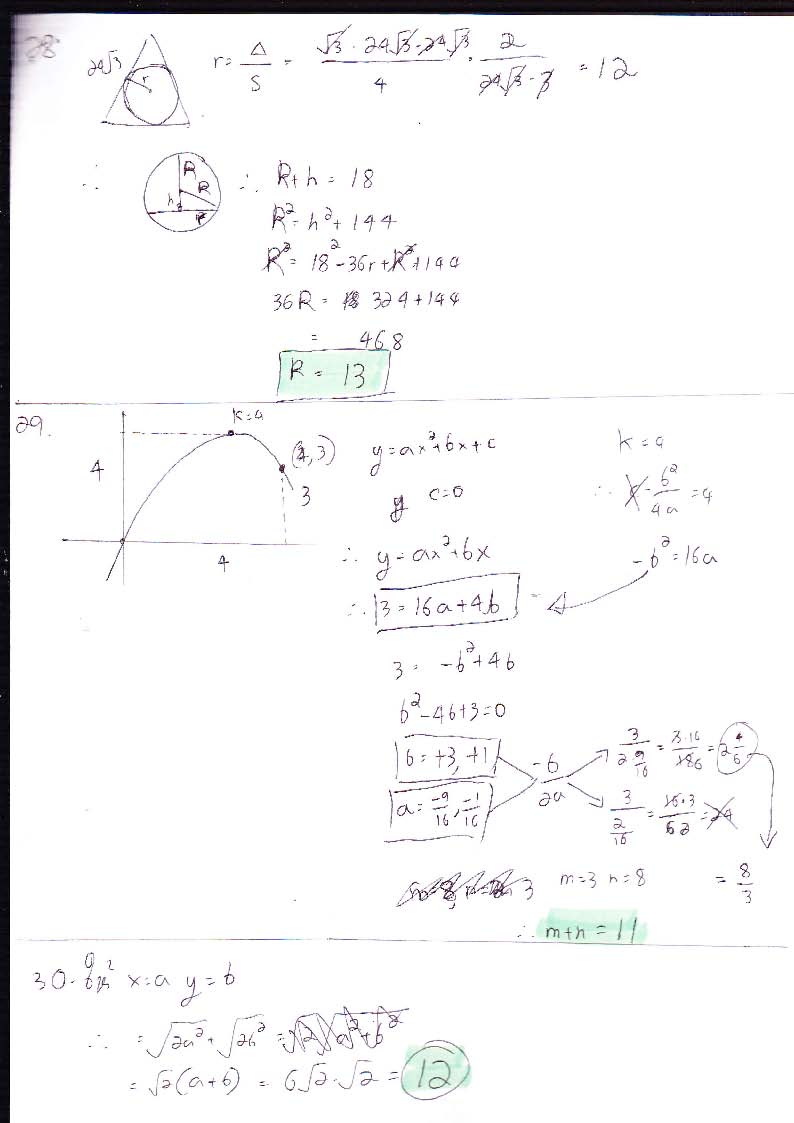 28
24√3 r r = Δ/S = √3 · 24√3 · 24√3 / 4 · 2 / 24√3 · 3 = 12
∴ R R h r ∴ R + h = 18
R² = h² + 144
R² = 18² - 36r + R² + 144
36R = 324 + 144
= 468
R = 13
29.
k=4
4
(4, 3)
3
4
y = ax² + bx + c
k = 4
y c = 0
∴ -b²/4a = 4
∴ y = ax² + bx
-b² = 16a
∴ 3 = 16a + 4b
3 = -b² + 4b
b² - 4b + 3 = 0
b = +3, +1
a = -9/16, -1/16
-b/2a
3 / 2 9/16 = 3·16 / 186 = 2 4/6
3 / 2/16 = 16·3 / 62 = 24
3 m=3 n=8 = 8/3
∴ m+n = 11
30. x=a y=b
∴ = √2a² + √2b² = √2 √a²+b²
= √2(a+b) = 6√2·√2 = 12